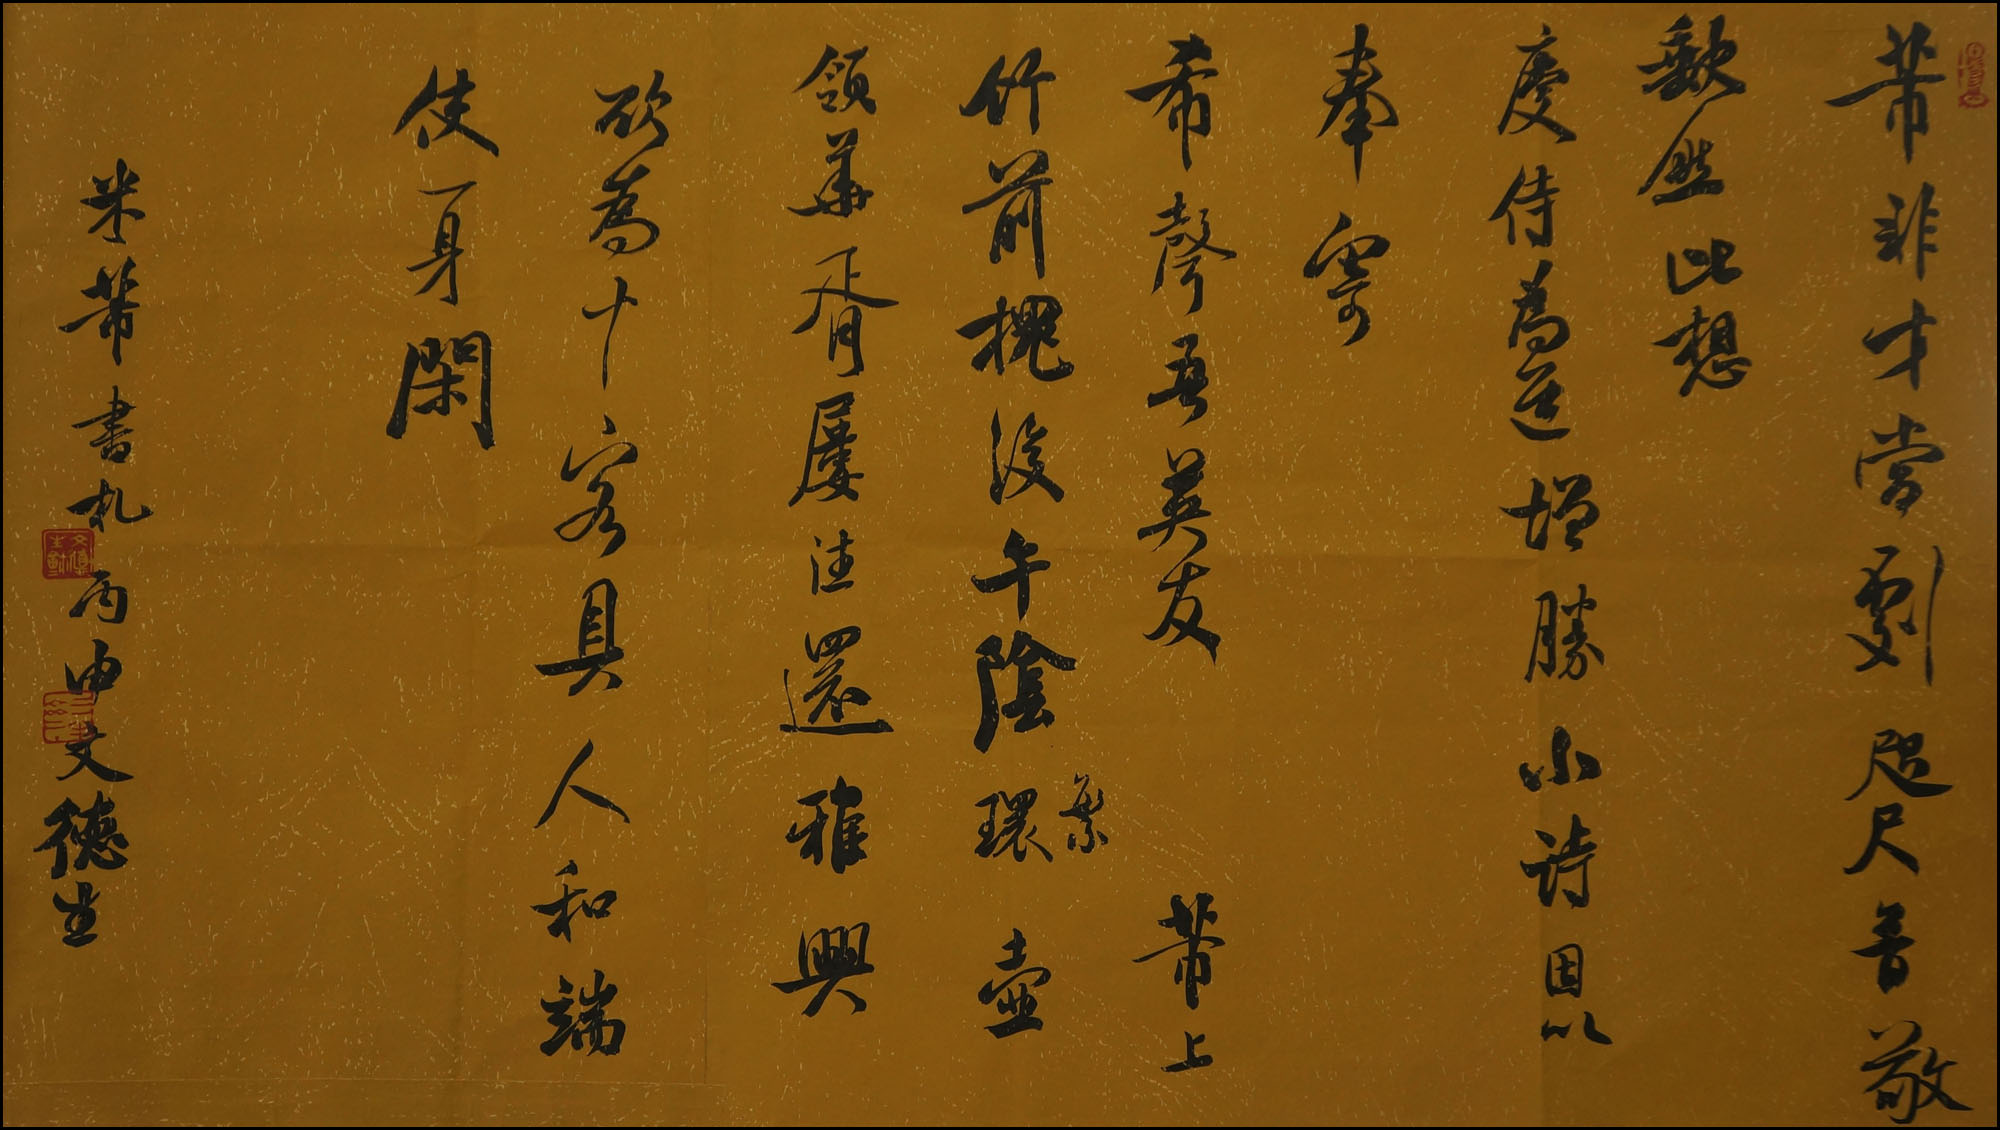 芾非才當劇咫尺音敬
歉然此想
慶侍為道增勝小詩因以
奉寄
希聲吾英友 芾上
竹前槐後午陰繁環壺
領華胥屢往還雅興
欲為十客具人和端
使一身閑
米芾書札丙申文德生